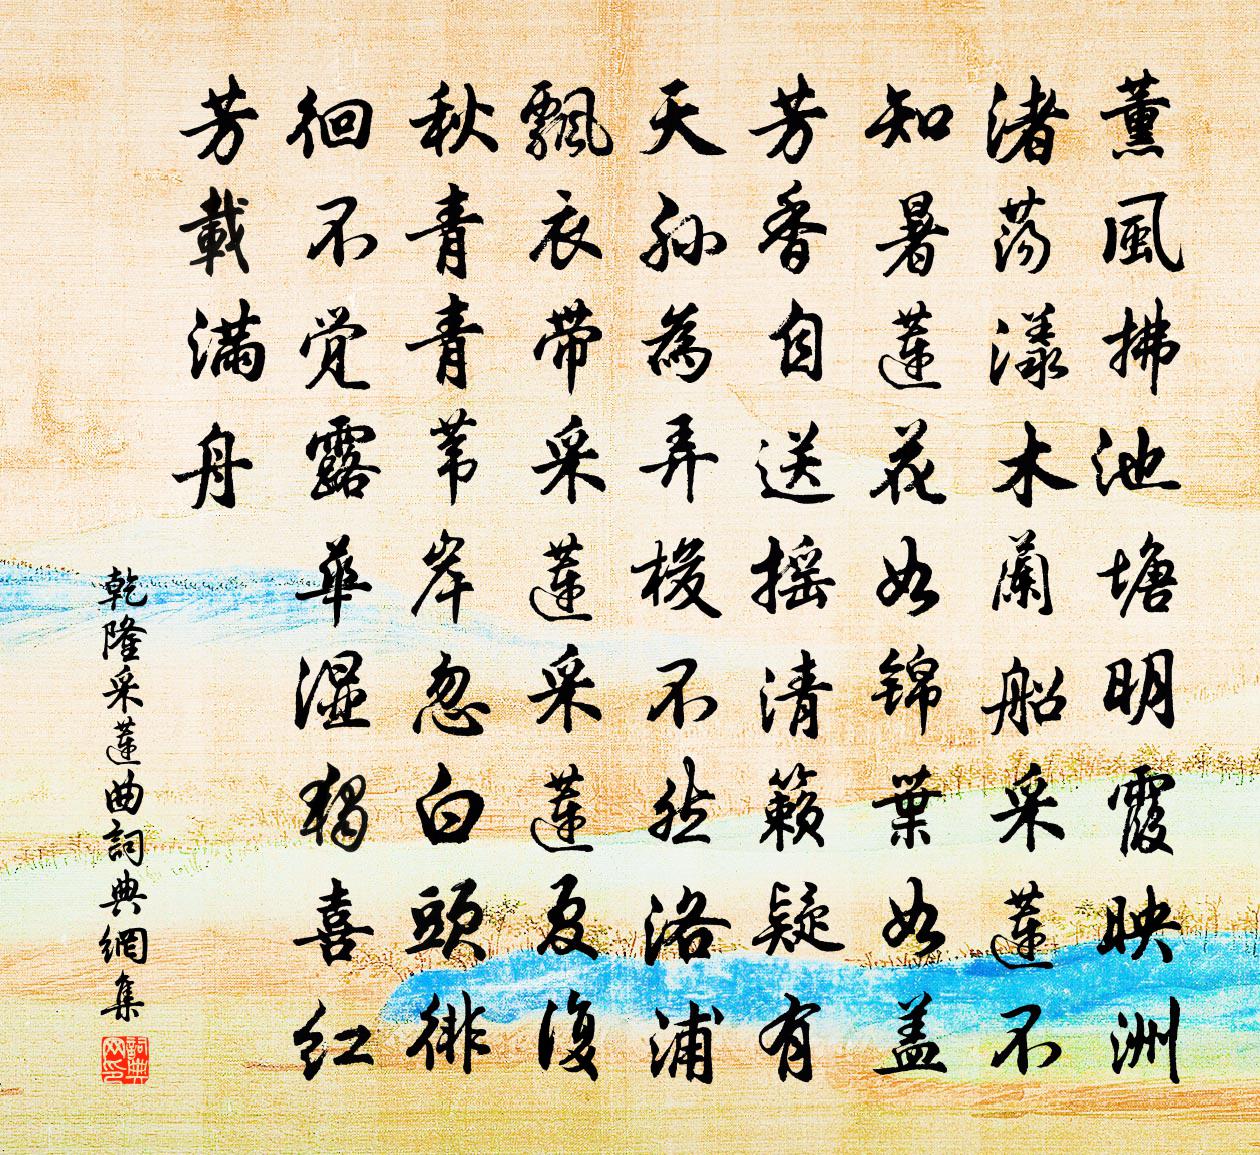 薰風拂池塘明霞映洲
渚蕩漾木蘭船采蓮不
知暑蓮花如錦葉如蓋
芳香自送搖清籟疑有
天孫為弄梭不然洛浦
飄衣帶采蓮采蓮夏復
秋青青葦岸忽白頭徘
徊不覺露華濕獨喜紅
芳載滿舟
乾隆采蓮曲詞典網集
詞典网印